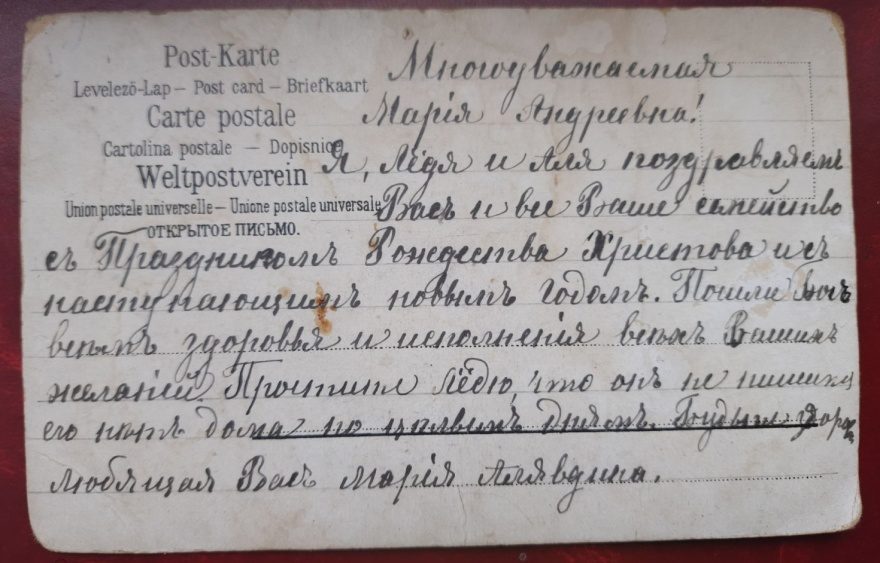 Post-Karte
Levelező-Lap – Post card – Briefkaart
Carte postale
Cartolina postale – Dopisnice
Weltpostverein
Union postale universelle – Unione postale universale
ОТКРЫТОЕ ПИСЬМО.
Многоуважаемая
Марія Андреевна!
Я, Лёдя и Аля поздравляемъ
Васъ и все Ваше семейство
съ Праздникомъ Рождества Христова и съ
наступающимъ новымъ годомъ. Пошли Богъ
всѣмъ здоровья и исполненія всѣхъ Вашихъ
желаній. Простите Лёдю, что онъ не пишетъ
его нѣтъ дома по цѣлымъ днямъ. Будьте здоровы
любящая Васъ Марія Алявдина.